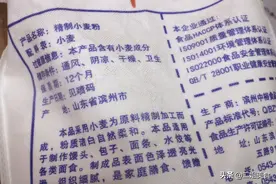 产品名称：精制小麦粉
配料表：小麦
致敏原：本产品含有小麦成分
贮存条件：通风、阴凉、干燥、卫生
保质期：12个月
生产日期：见喷码
产地：山东省滨州市
本品采用小麦为原料精制加工而
粉质洁白自然柔和。本品适
于制作馒头、包子、面条、水饺等
各类面食。制成品表面色泽亮
组织细腻，是家庭膳食、馈赠
本企业通过：
食品HACCP体系认证
ISO9001质量管理体系
ISO14001环境管理体系
ISO22000食品安全管理
QB/T 28001职业健康安全
生产商：滨州中裕食品
产品标准代号：
食品生产许可证编号
地址：山东